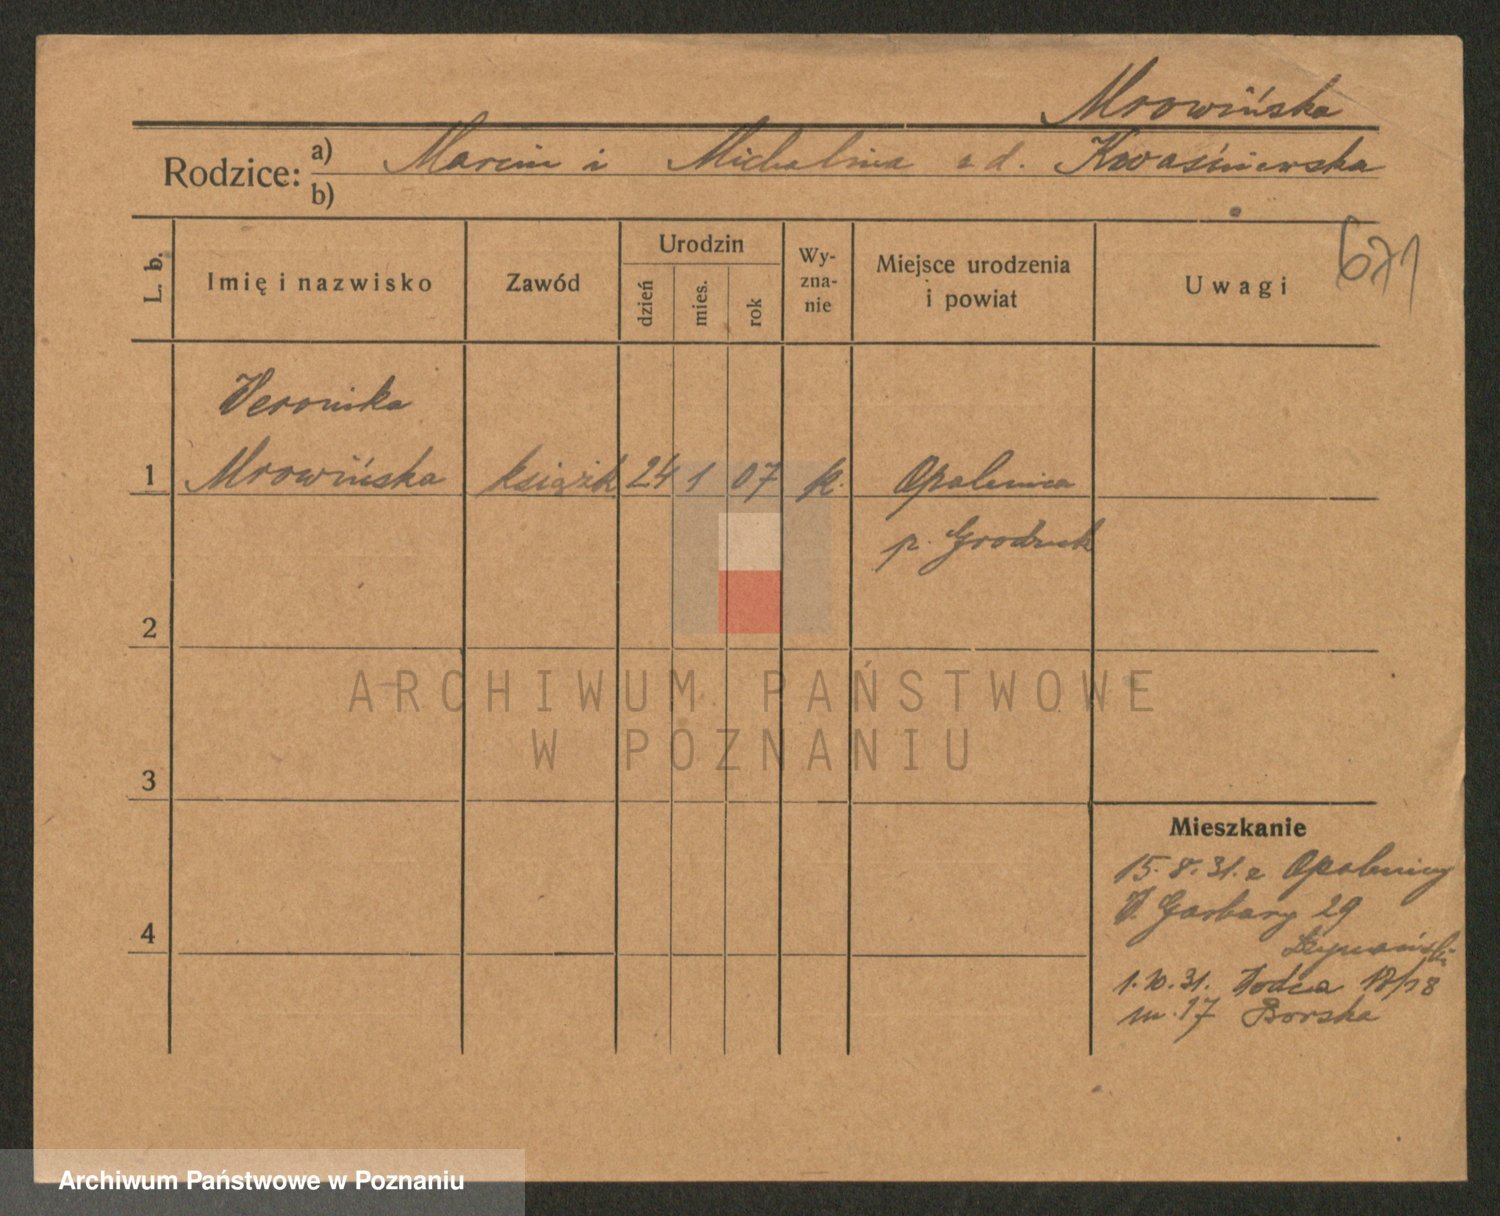 Mrowińska
Rodzice: a) Marcin i Michalina z d. Kwaśniewska
b)
L. b.
Imię i nazwisko
Zawód
Urodzin
dzień
mies.
rok
Wy-
zna-
nie
Miejsce urodzenia
i powiat
Uwagi
671
Weronika
1 Mrowińska książk 24 1 07 k. Opalenica
p. Grodzisk
2
3
4
Mieszkanie
15.8.31. z Opalenicy
W. Garbary 29
1.10.31. Wodna 18/18
m. 17 Borska
ARCHIWUM PAŃSTWOWE
W POZNANIU
Archiwum Państwowe w Poznaniu